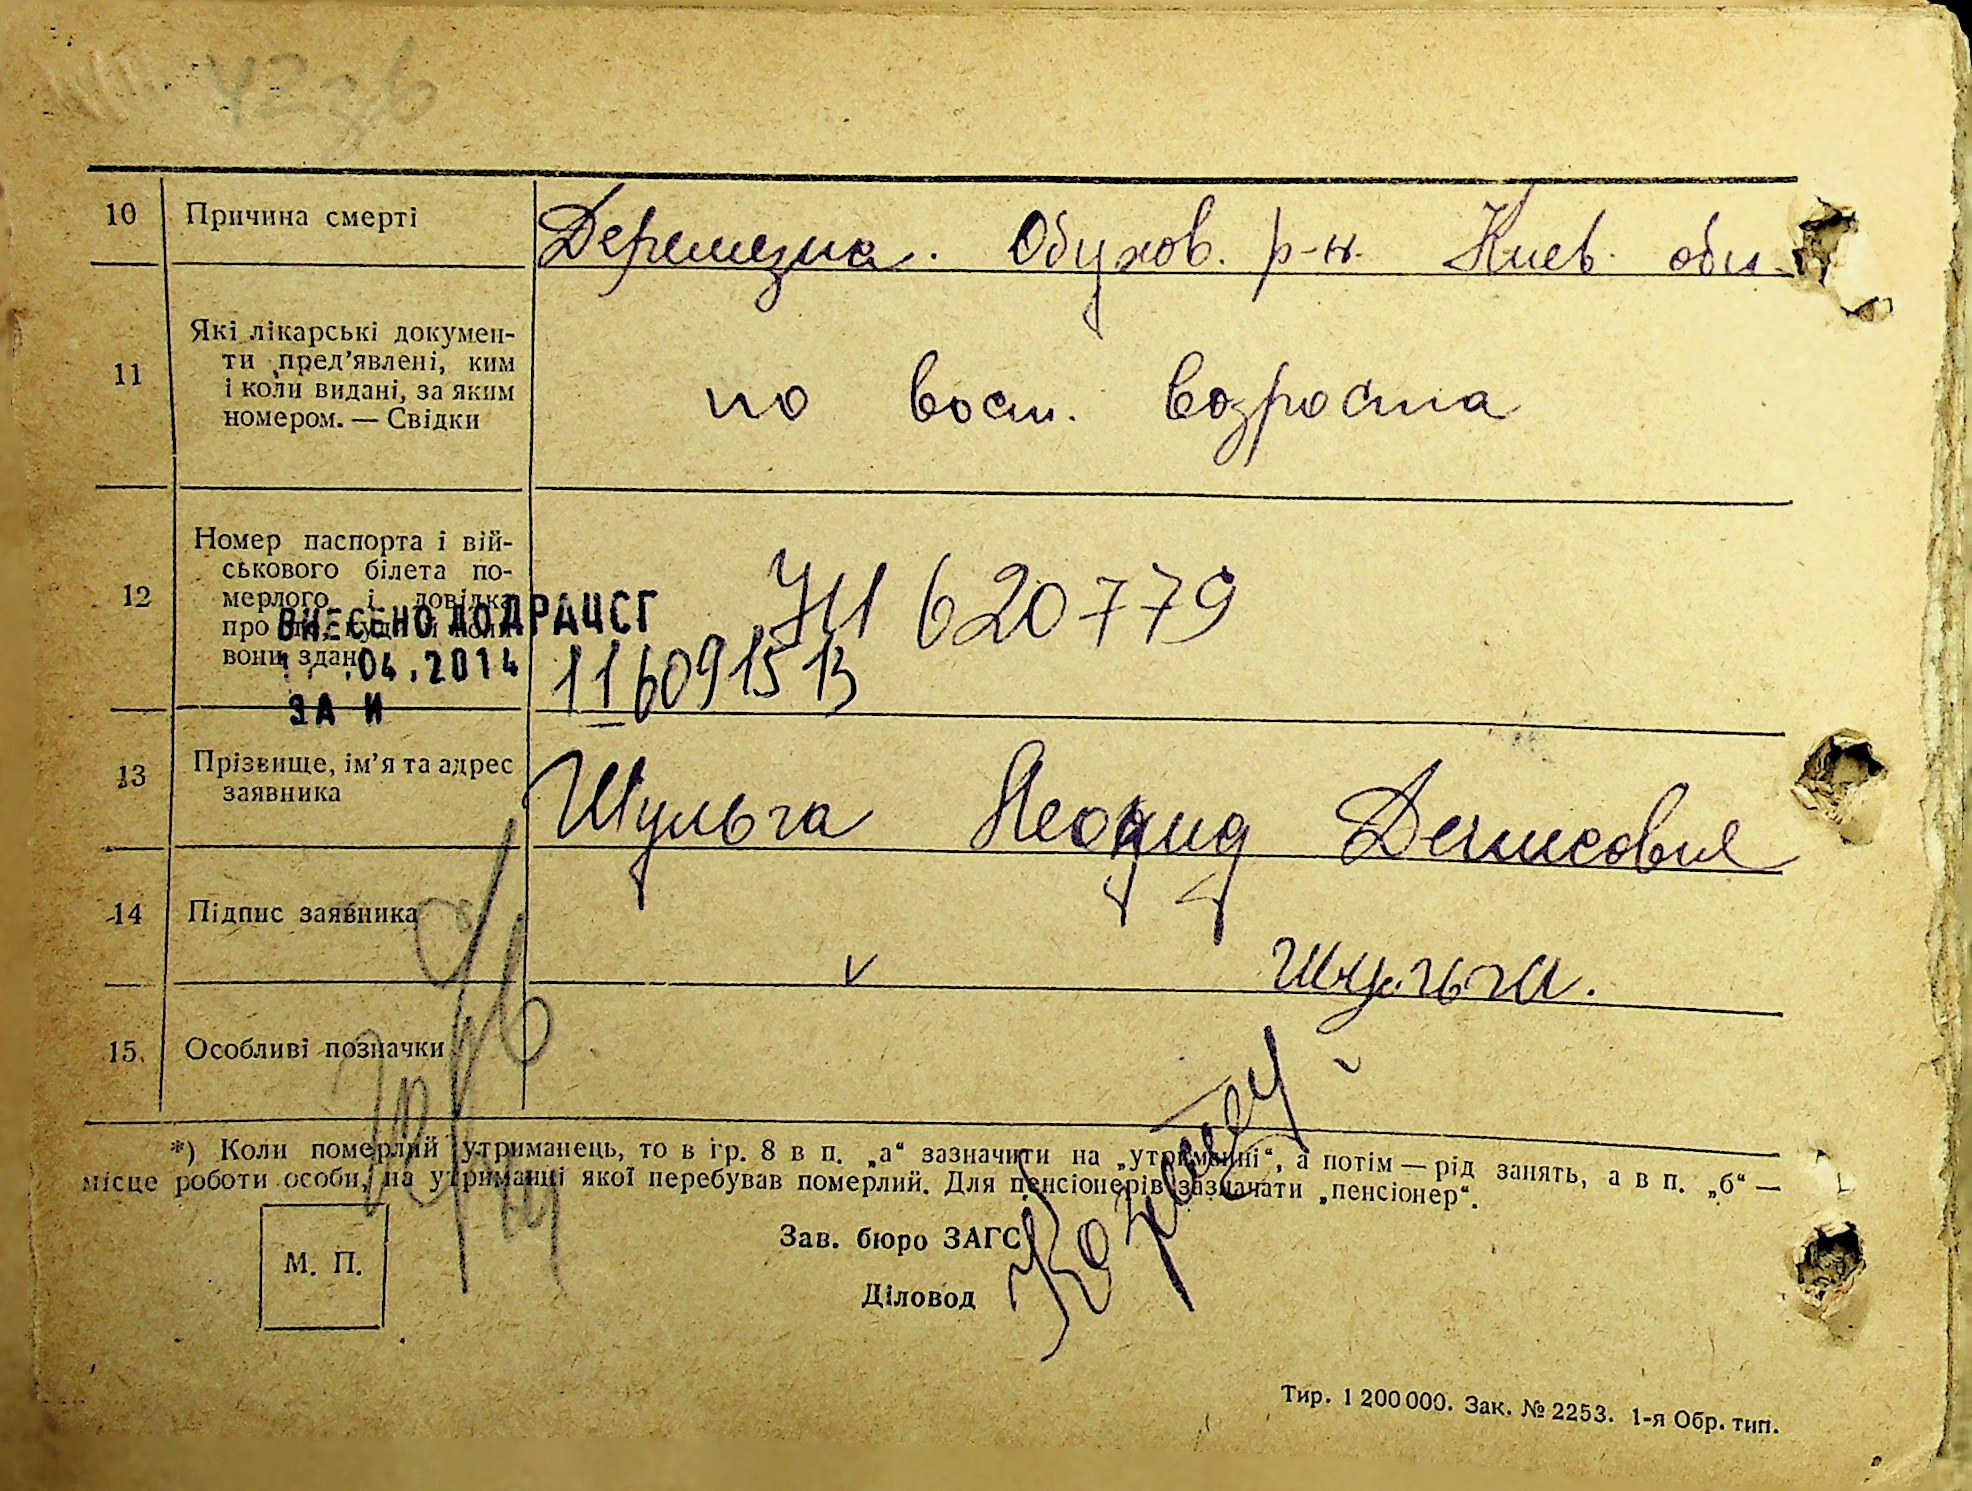 10 Причина смерті Деремезна. Обухов. р-н. Киев. обл.
11 Які лікарські докумен-
ти пред’явлені, ким
і коли видані, за яким
номером. — Свідки
по восп. возроста
12 Номер паспорта і вій-
ськового білета по-
мерлого і довідка
про те, куди й коли
вони здані
620779
ВНЕСЕНО ДО ДРАЦСГ
.04.2014 116091513
ЗА И
13 Прізвище, ім’я та адрес
заявника
Шульга Леонид Денисовия
14 Підпис заявника
v Шульга.
15. Особливі позначки
*) Коли померлий утриманець, то в гр. 8 в п. „а“ зазначити на „утриманні“, а потім — рід занять, а в п. „б“ —
місце роботи особи, на утриманні якої перебував померлий. Для пенсіонерів зазначати „пенсіонер“.
М. П.
Зав. бюро ЗАГС
Діловод
Тир. 1 200 000. Зак. № 2253. 1-я Обр. тип.